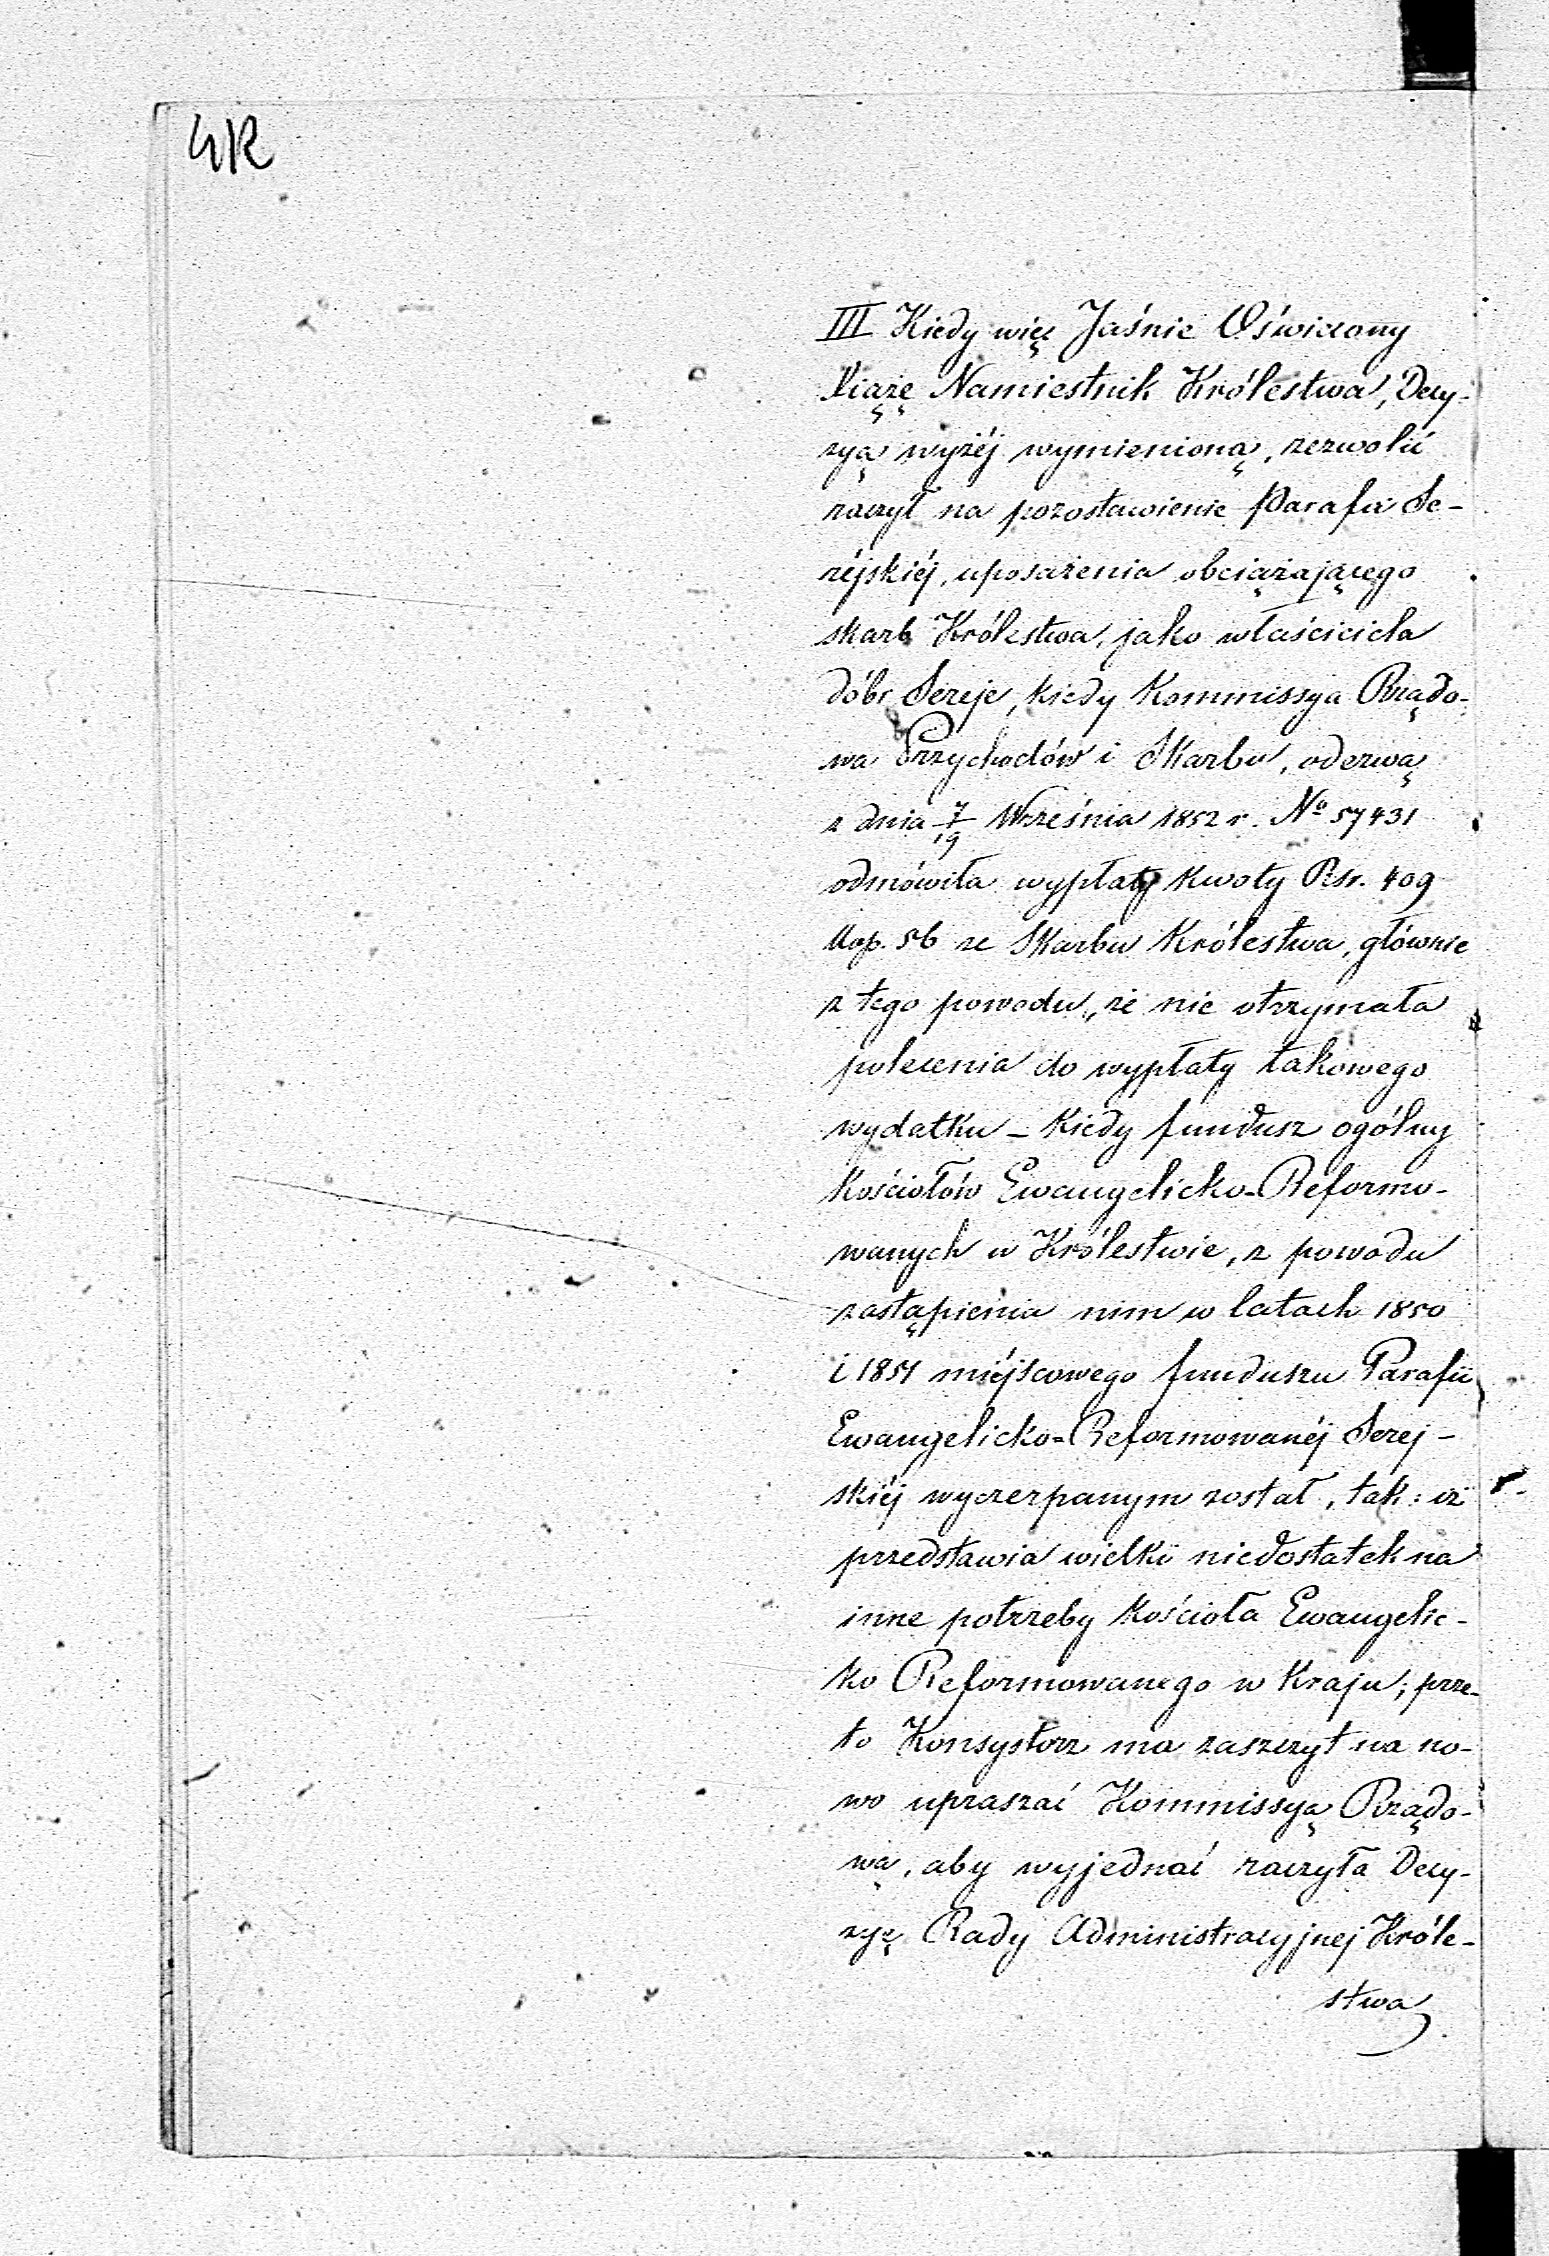 4R
III Kiedy więc Jaśnie Oświecony
Xiążę Namiestnik Królestwa, Decy-
zyą wyżéj wymienioną, zezwolić
raczył na pozostawienie Parafii Se-
réjskiéj, uposażenia obciążającego
skarb Królestwa, jako właściciela
dóbr Sereje, kiedy Kommissya Rządo-
wa Przychodów i Skarbu, odezwą
z dnia 7/19 Września 1852 r. No 57431
odmówiła wypłaty kwoty Rsr. 409
kop. 56 ze Skarbu Królestwa, głównie
z tego powodu, że nie otrzymała
polecenia do wypłaty takowego
wydatku - kiedy fundusz ogólny
kościołów Ewangelicko-Reformo-
wanych w Królestwie, z powodu
zastąpienia nim w latach 1850
i 1851 miéjscowego funduszu Parafii
Ewangelicko=Reformowanéj Serej-
skiéj wyczerpanym został, tak: iż
przedstawia wielki niedostatek na
inne potrzeby kościoła Ewangelic-
ko Reformowanego w Kraju; prze-
to Konsystorz ma zaszczyt na no-
wo upraszać Kommissyą Rządo-
wą, aby wyjednać raczyła Decy-
zyę Rady Administracyjnej Króle-
stwa